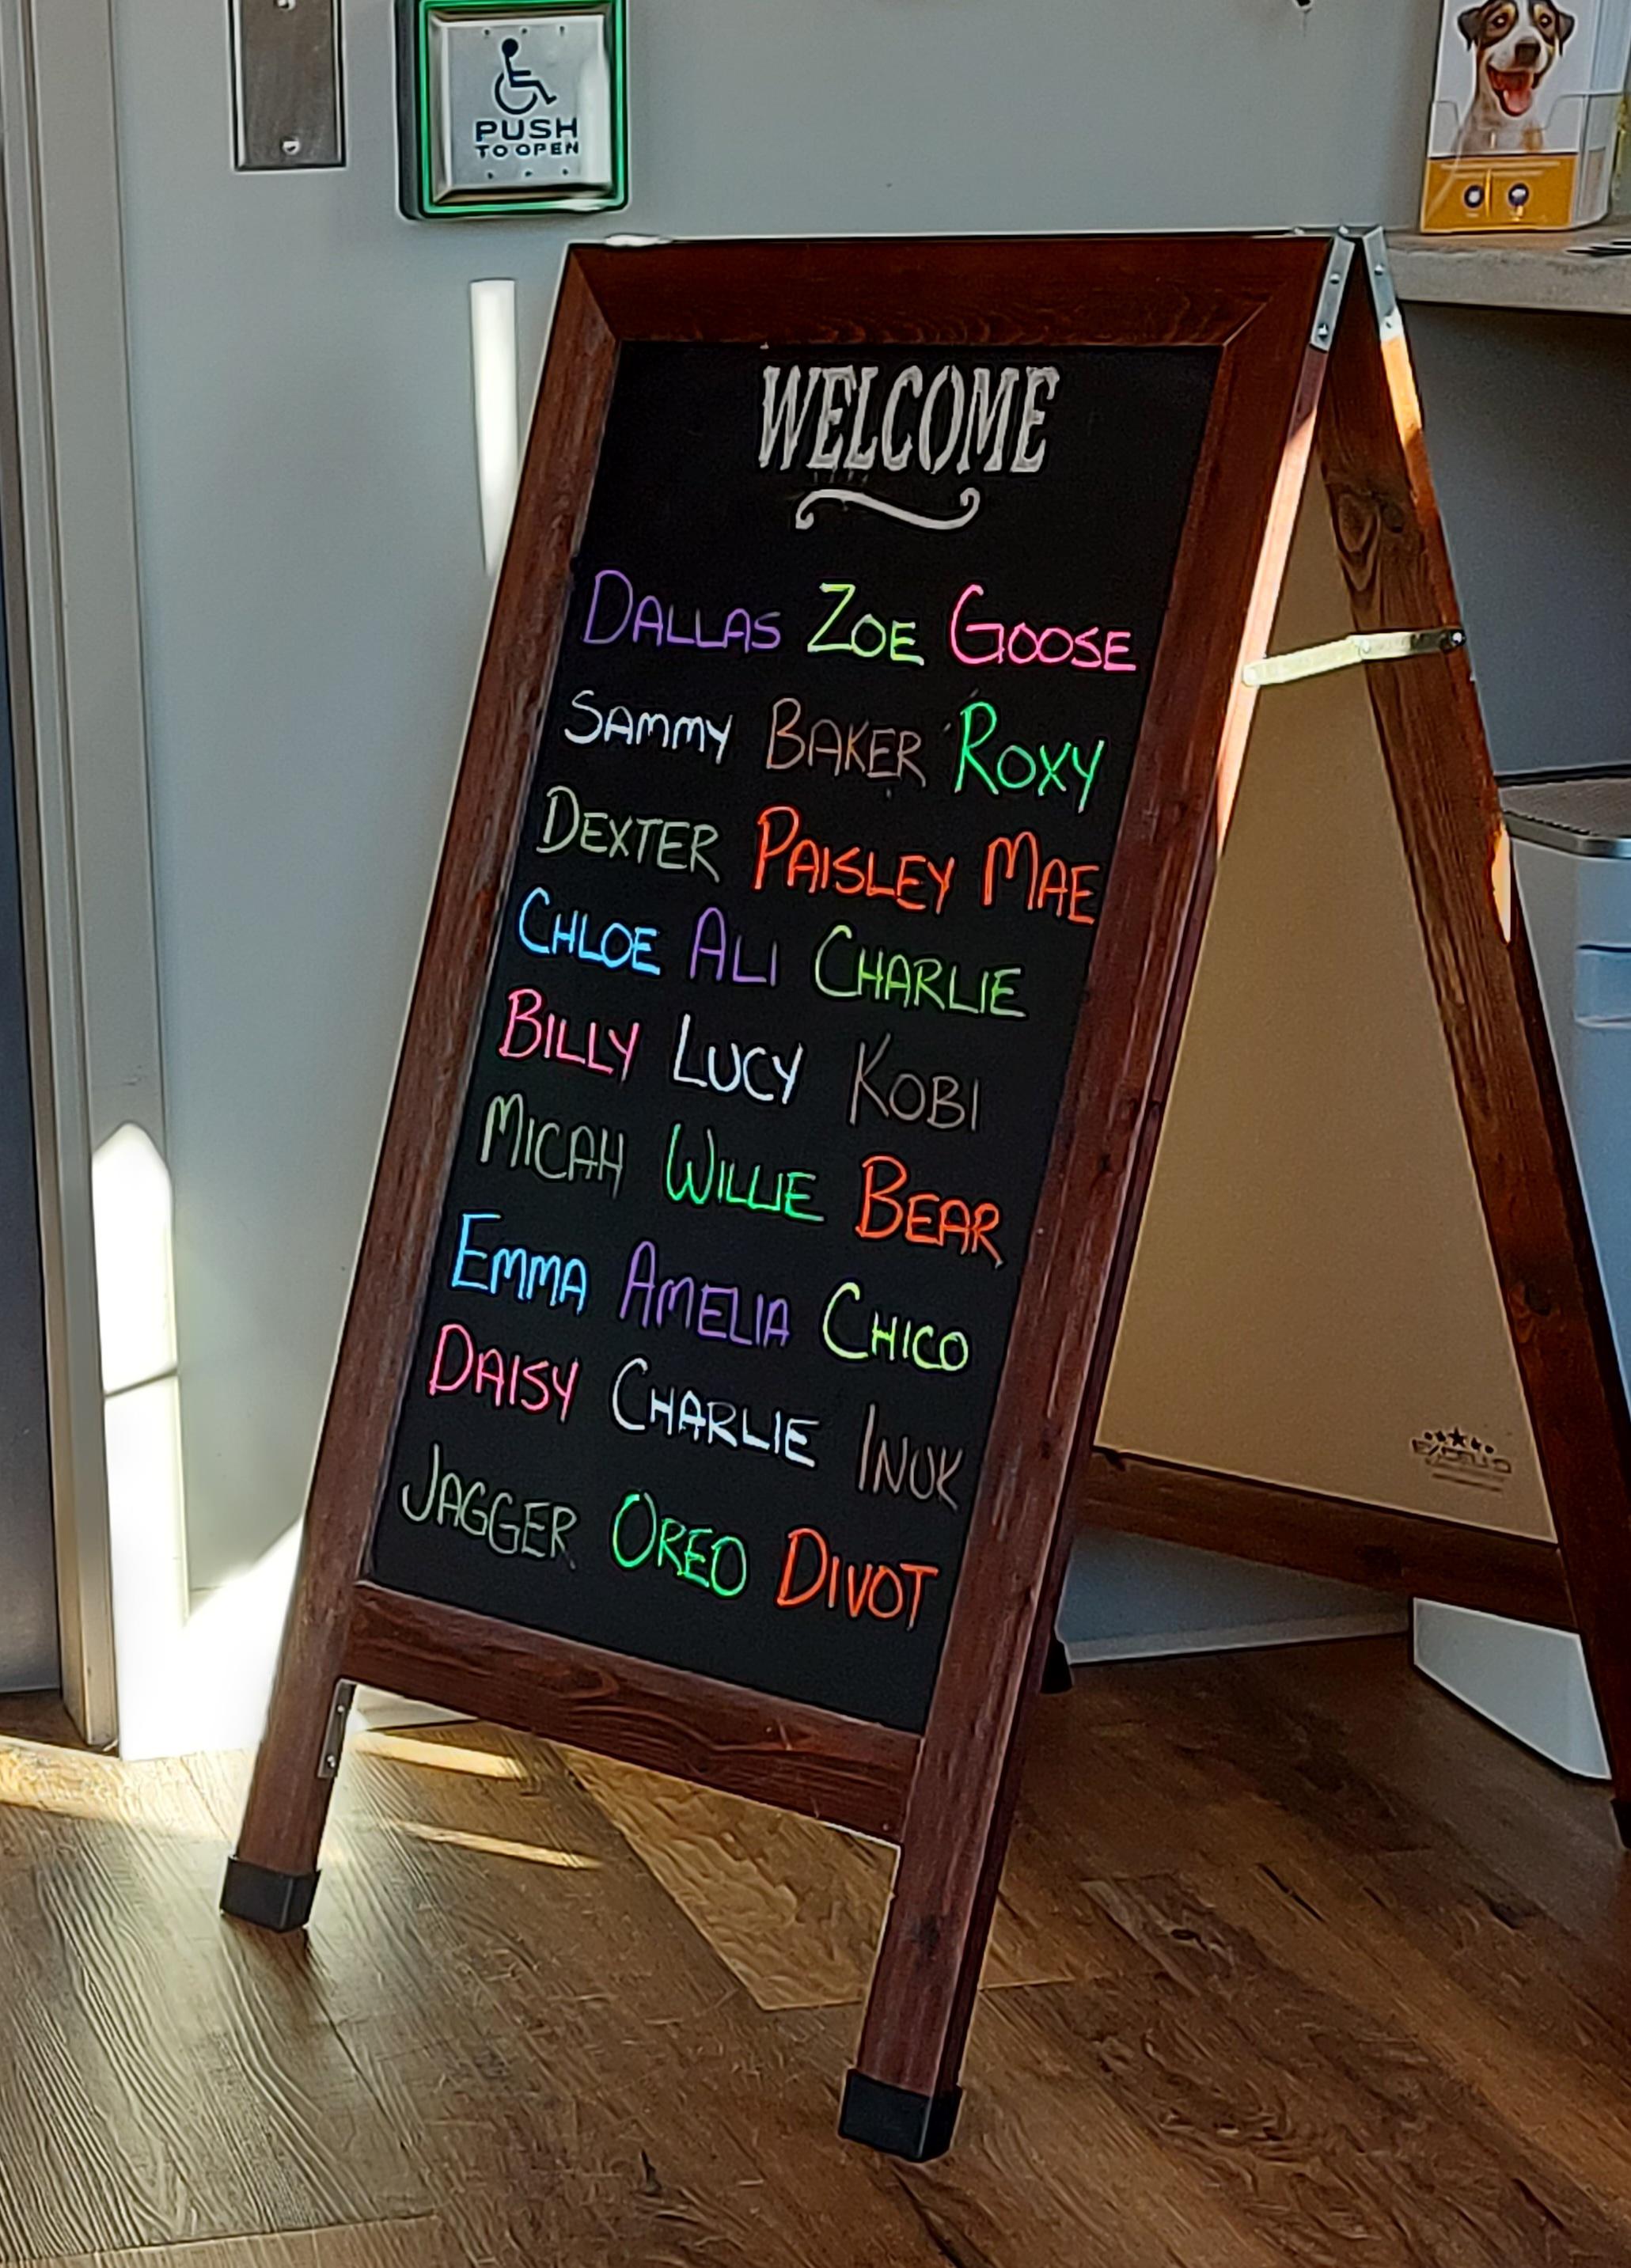 PUSH
TO OPEN
WELCOME
DALLAS ZOE GOOSE
SAMMY BAKER ROXY
DEXTER PAISLEY MAE
CHLOE ALI CHARLIE
BILLY LUCY KOBI
MICAH WILLIE BEAR
EMMA AMELIA CHICO
DAISY CHARLIE INUK
JAGGER OREO DIVOT
EXCELLO